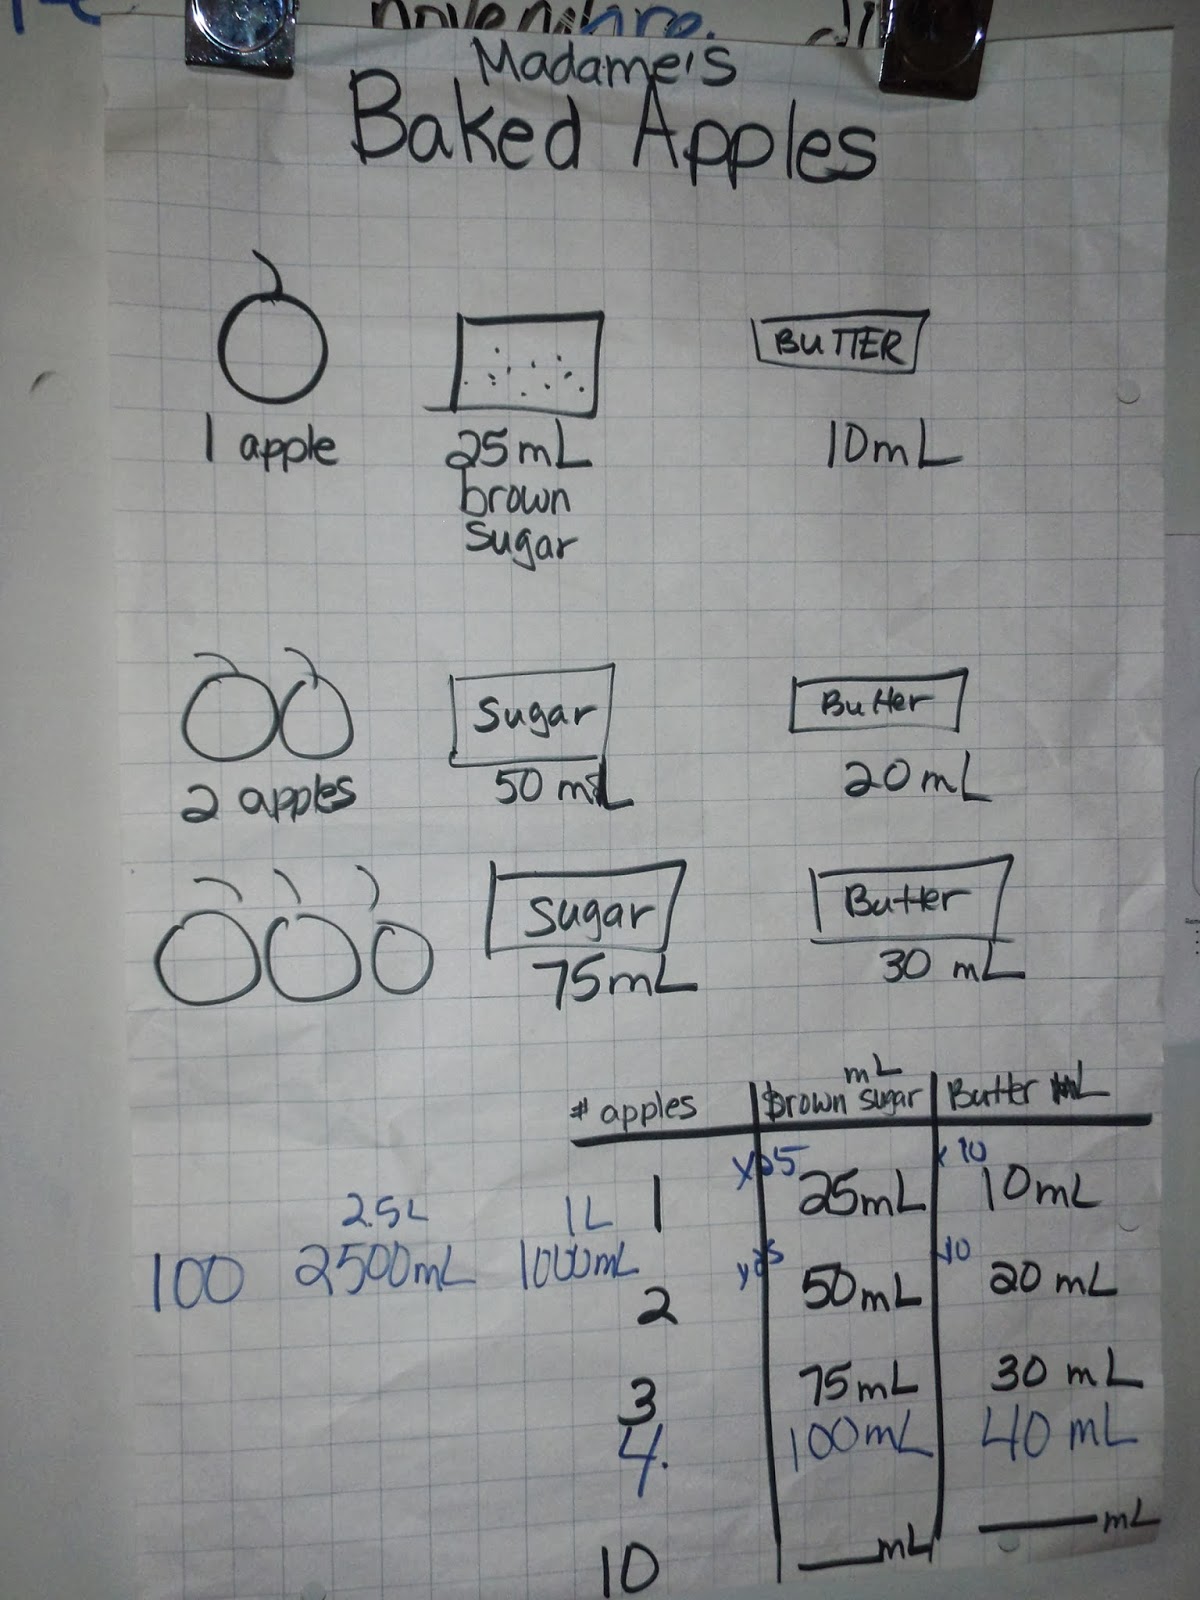 novembre.
Madame's
Baked Apples
BUTTER
1 apple
25mL
10mL
brown
sugar
Sugar
Butter
2 apples
50 mL
20 mL
Sugar
Butter
75mL
30 mL
mL
# apples brown sugar Butter mL
x25 x 10
1 25mL 10mL
2.5L 1L
100 2500mL 1000mL
x25 x10
2 50mL 20 mL
3 75mL 30 mL
4. 100mL 40 mL
10 ___mL ___mL